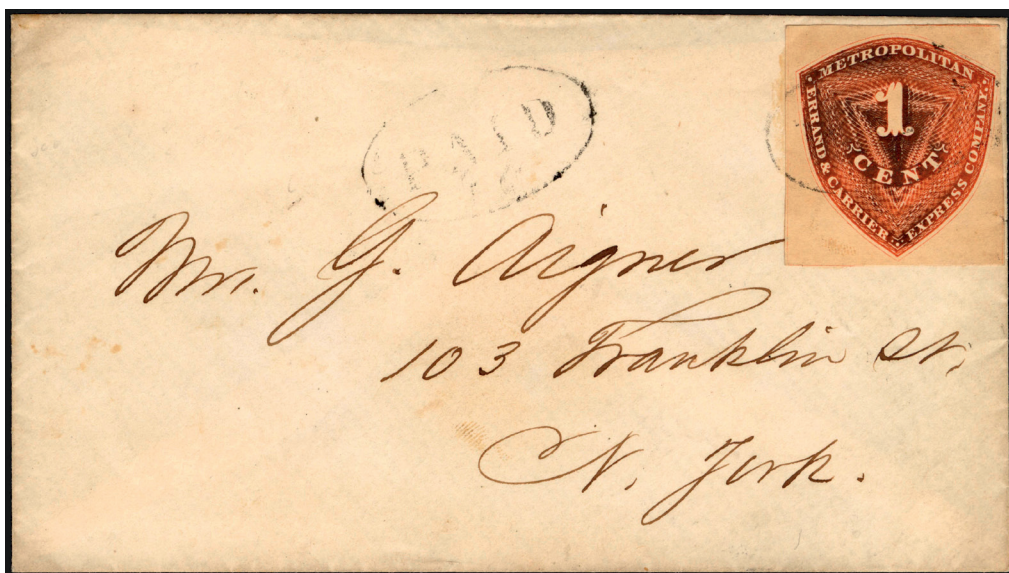 PAID
METROPOLITAN
ERRAND & CARRIER EXPRESS COMPANY.
1
CENT
Mr. G. Aigner
103 Franklin St,
N. York.